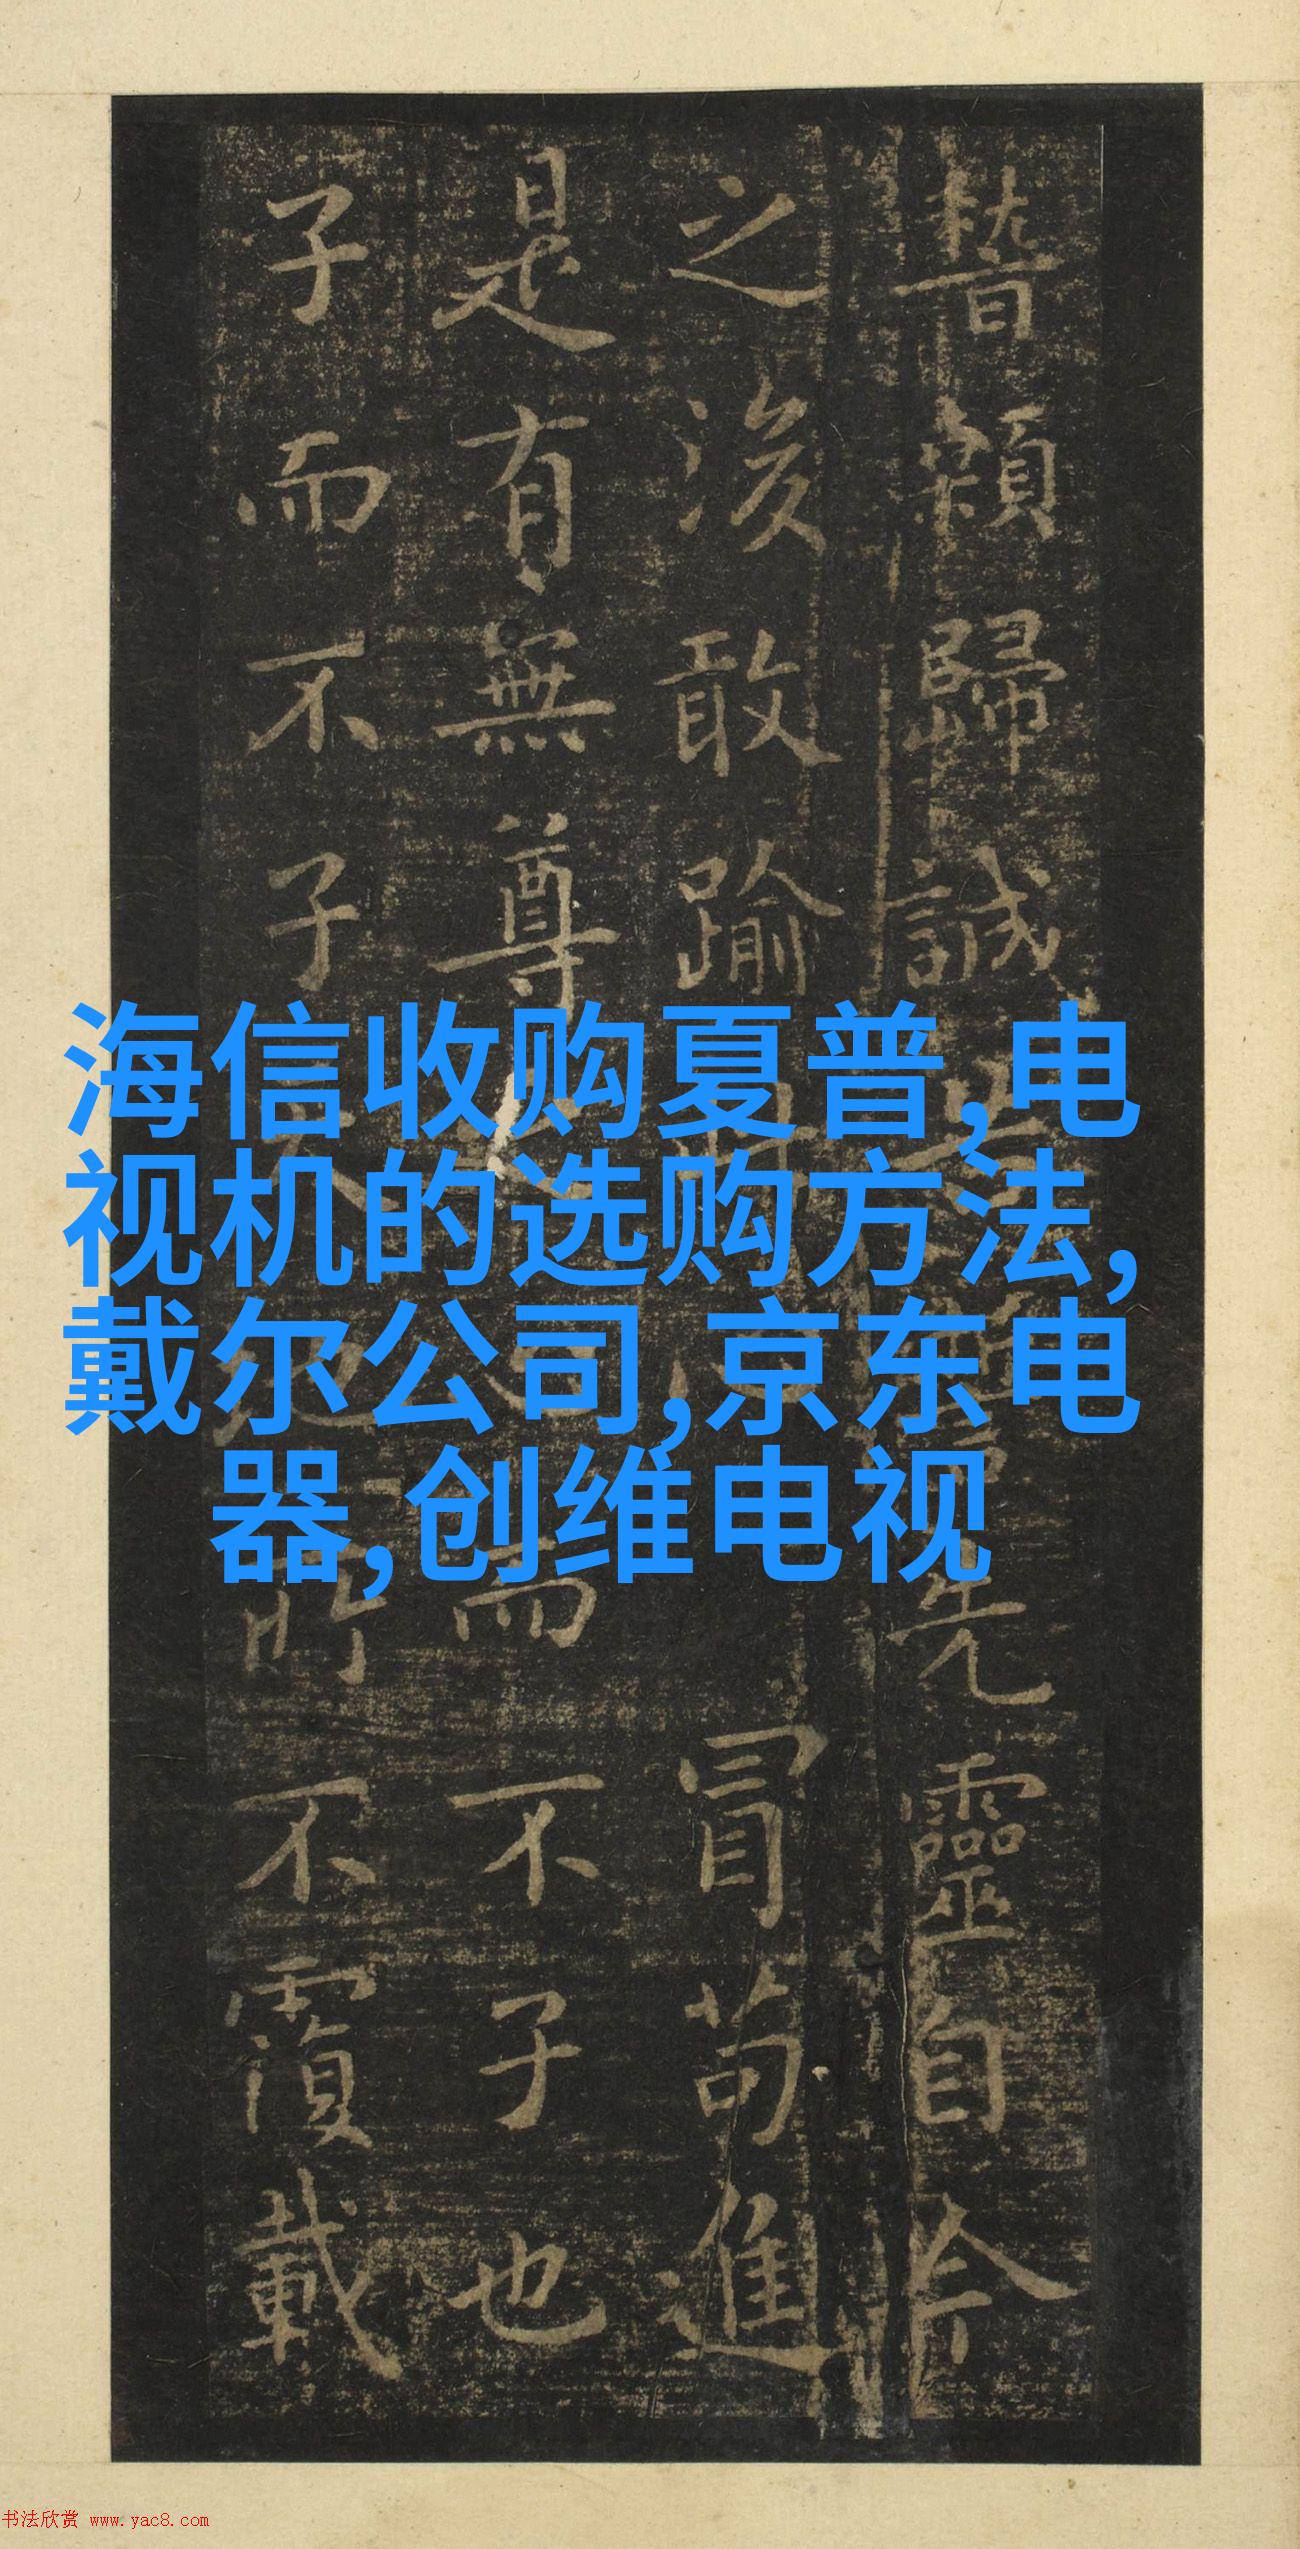 海信收购夏普,电
视机的选购方法,
戴尔公司,京东电
器,创维电视
稽颡歸誠
先靈自矜
之後敢踰
冒苟進
是有無尊
而不子也
子而不子
不覆載
书法欣赏 www.yac8.com